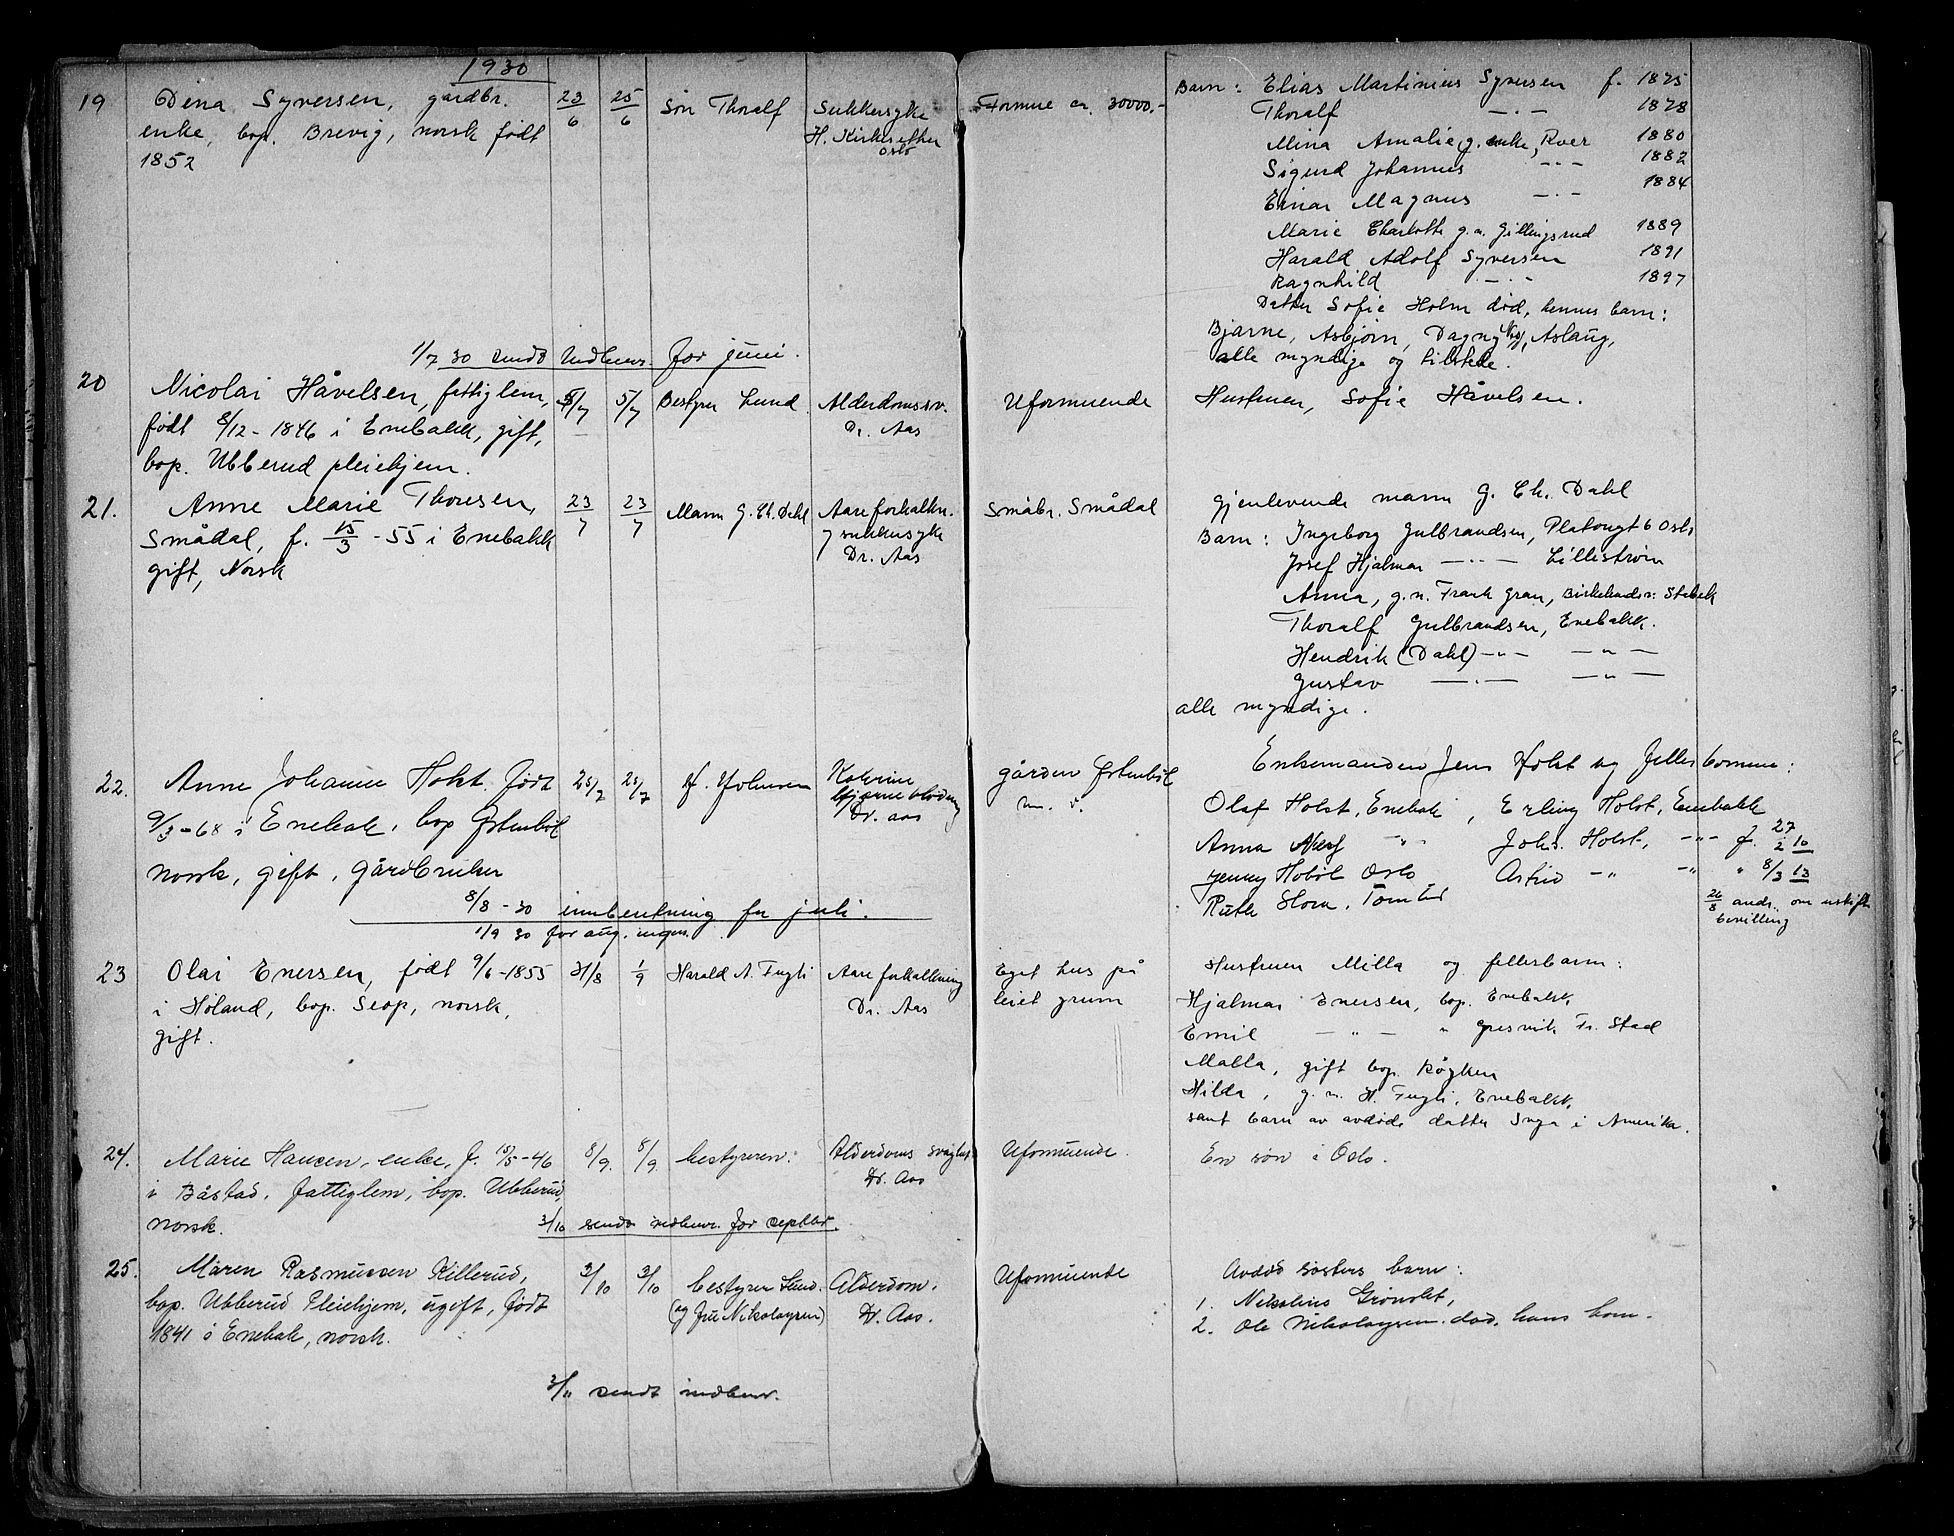 1930
19 Dina Syversen, gardbr. 23/6 25/6 Søn Thoralf Sukkersyke Formue ca. 30000,-
enke, bop. Brevig, norsk født H. Kirkesether
1852 Oslo
Barn: Elias Martinius Syversen f. 1875
Thoralf —·— 1878
Mina Amalie g. enke, 1880
Sigurd Johannes —"— 1882
Einar Magnus —·— 1884
Marie Charlotte g.m. Gillingsrud 1889
Harald Adolf Syversen 1891
Ragnhild —·— 1897
Datter Sofie Holm død, hennes barn:
Bjarne, Asbjørn, Dagny, Aslaug,
alle myndige og tilstede.
1/7 30 sendt indber. for juni.
20 Nicolai Håvelsen, fattiglem, 5/7 5/7 Bestyrer Lund Alderdomssv. Uformuende Hustruen, Sofie Håvelsen.
født 8/12-1846 i Enebakk, gift, Dr. Aas
bop. Ubberud pleiehjem.
21. Anne Marie Thoresen, 23/7 23/7 Mann G. Ch. Dahl Aareforkalkn. Småbr. Smådal
Smådal, f. 15/3-55 i Enebakk og sukkersyke
gift, Norsk Dr. Aas
Gjenlevende mann G. Ch. Dahl
Barn: Ingeborg Gulbrandsen, Platougt 6 Oslo
Josef Hjalmar —··— Lilleström
Anna, g.m. Frank Gran, Stabek
Thoralf Gulbrandsen, Enebakk.
Hendrik (Dahl) —"— —"—
Gustav —·— —"—
alle myndige.
22. Anne Johanne Holst, født 25/7 25/7 Gården Østenbøl
9/3-68 i Enebak, bop Østenbøl Dr. Aas m. v.
norsk, gift, gårdbruker
Enkemanden Jens Holst og felles barn:
Olaf Holst, Enebak, Erling Holst, Enebakk
Anna —"— Johs. Holst, —"— f. 27/2 10
Jenny Hobøl Oslo Astrid —"— —"— " 8/3 13
Ruth Tomter
26/8 andr. om uskifte
bevilling
8/8-30 innberetning for juli.
1/9 30 for aug. ingen.
23 Olai Enersen, født 9/6-1855 31/8 1/9 Harald A. Fugli Aareforkalkning Eget hus på
i Høland, bop. norsk, Dr. Aas leiet grunn
gift.
Hustruen Milla og fellesbarn:
Hjalmar Enersen, bop. Enebakk,
Emil —"— " Gresvik Fr. Stad
Malla, gift bop. Røyken
Hilda, g.m. H. Fugli, Enebakk,
samt barn av avdøde datter Inga i Amerika.
24. Marie Hansen, enke, f. 15/5-46 8/9. 8/9. bestyreren. Alderdoms svaghet Uformuende. En søn i Oslo.
i Båstad, fattiglem, bop. Ubberud, Dr. Aas
norsk.
3/10 sendt indber. for septbr.
25. Maren Rasmussen Killerud, 3/10 3/10 bestyrer Lund. Alderdom. Uformuende
bop. Ubberud Pleiehjem, ugift, født (og fru Nikolaysen) Dr. Aas.
1841 i Enebak, norsk.
Avdød søsters barn:
1. Nikoline
2. Ole Nikolaysen død, hans barn.
3/11 sendt indber.